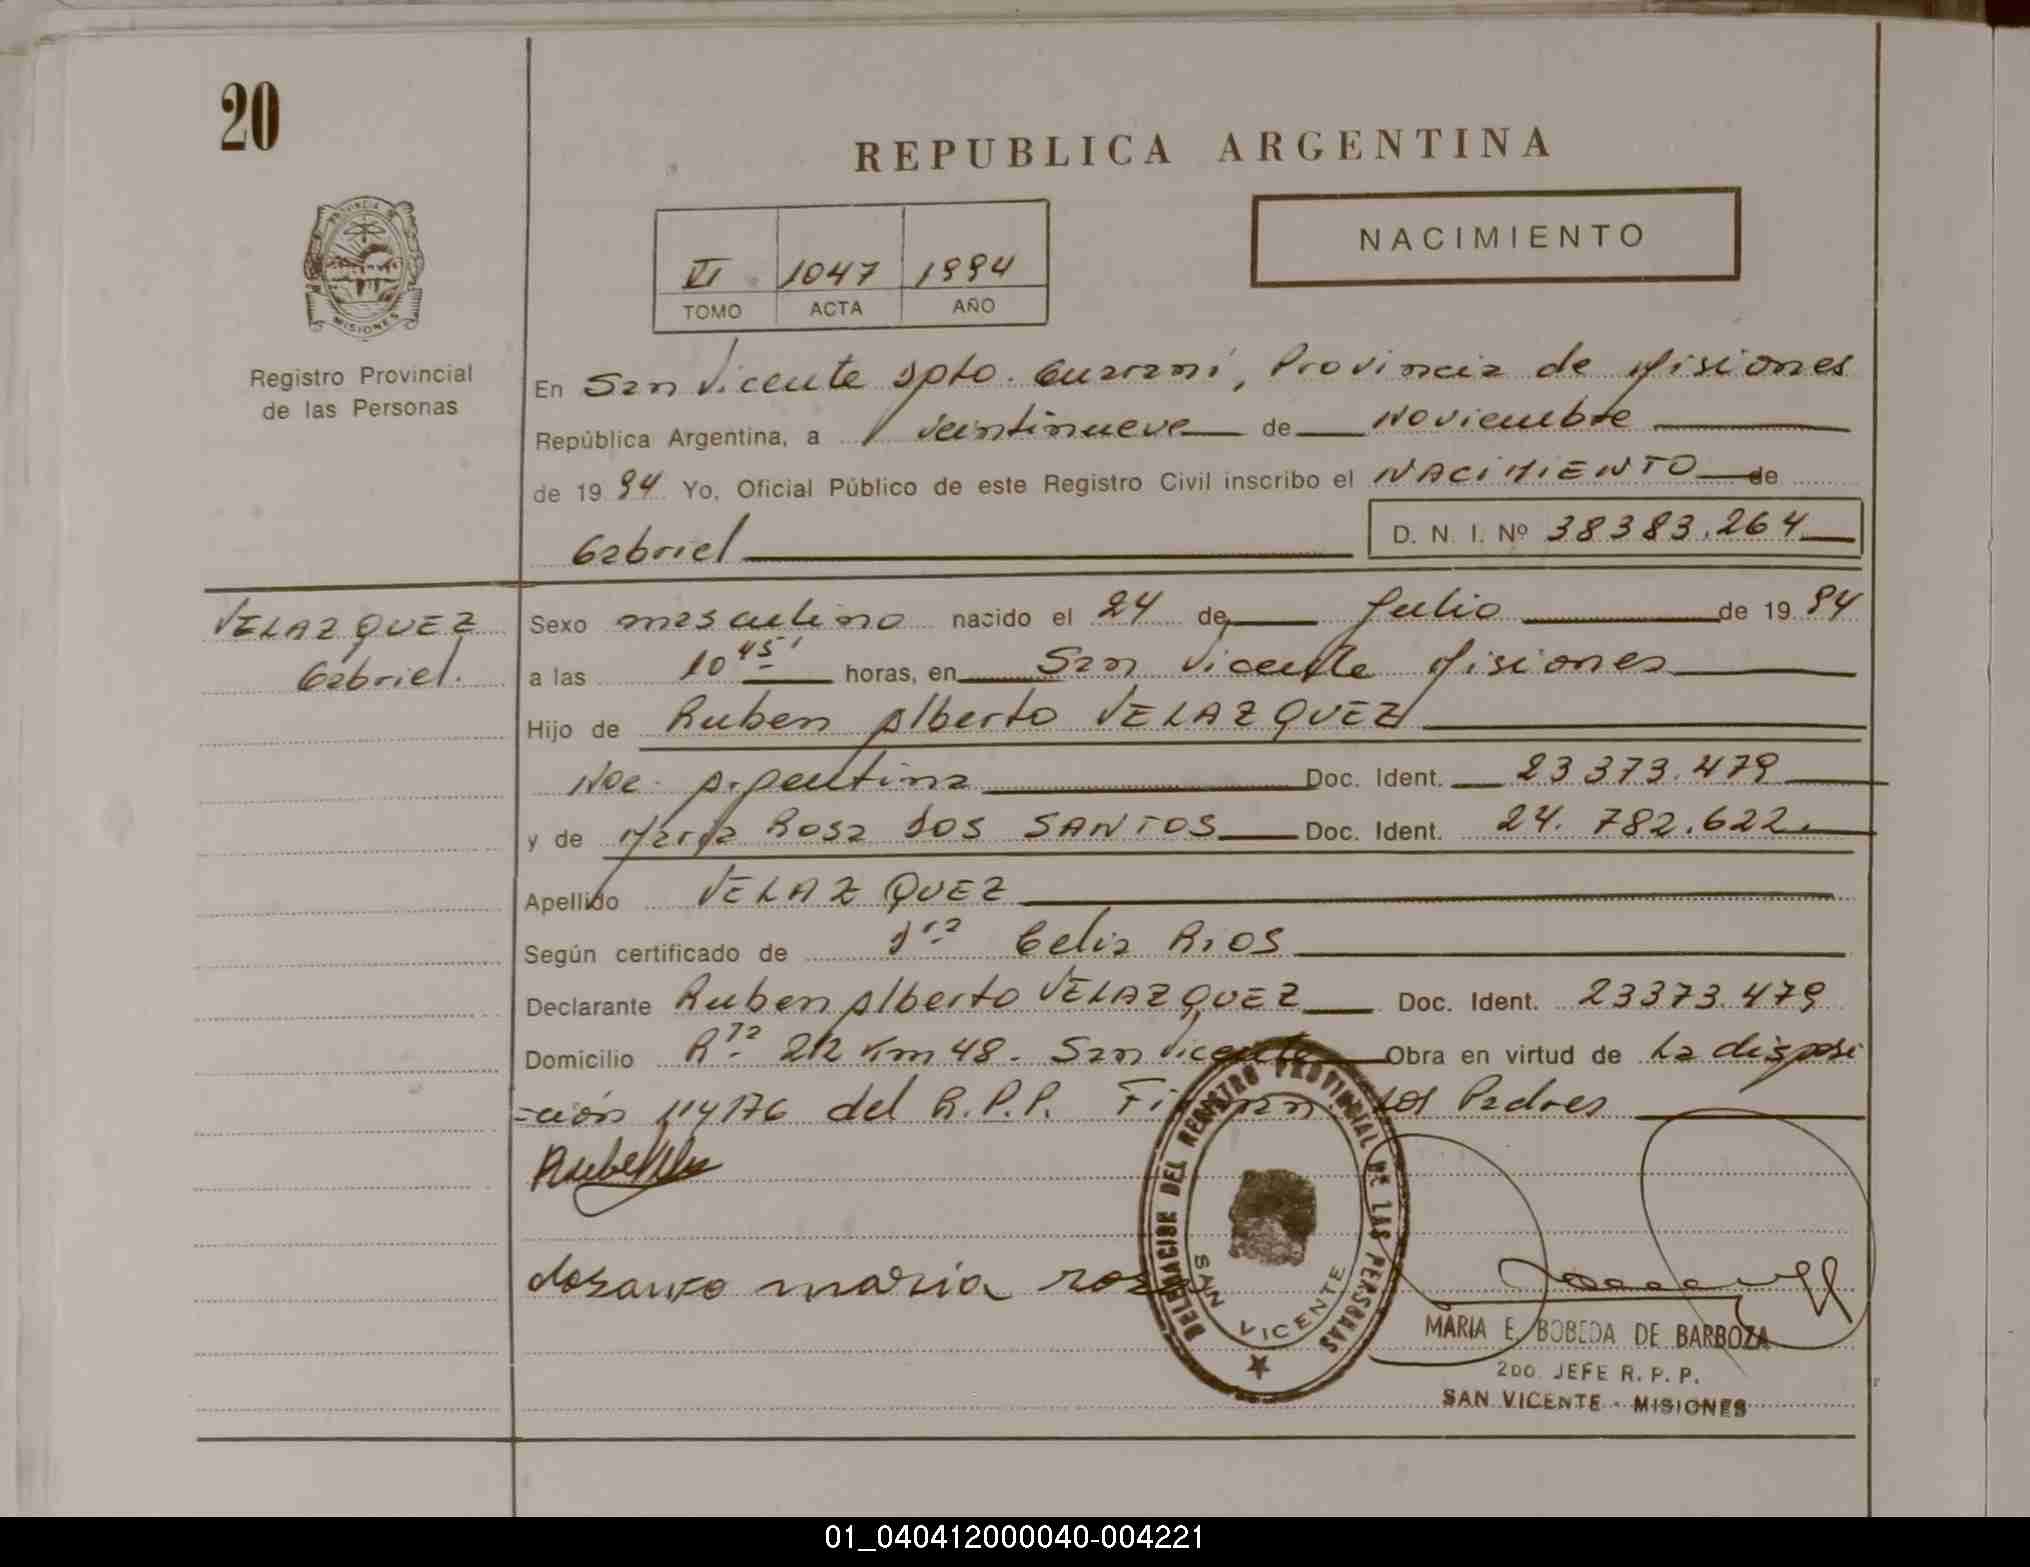 20
REPUBLICA ARGENTINA
NACIMIENTO
VI 1047 1994
TOMO ACTA AÑO
PROVINCIA DE
MISIONES
Registro Provincial
de las Personas
En San Vicente Dpto. Guaraní, Provincia de Misiones
República Argentina, a veintinueve de Noviembre
de 19 94 Yo, Oficial Público de este Registro Civil inscribo el NACIMIENTO de
Gabriel D. N. I. Nº 38383.264
VELAZQUEZ
Gabriel.
Sexo masculino nacido el 24 de Julio de 19 94
a las 10 45' horas, en San Vicente Misiones
Hijo de Ruben Alberto VELAZQUEZ
Nac. Argentina Doc. Ident. 23373.479
y de Maria Rosa DOS SANTOS Doc. Ident. 24.782.622.
Apellido VELAZQUEZ
Según certificado de Dra. Celia Rios
Declarante Ruben Alberto VELAZQUEZ Doc. Ident. 23373.479
Domicilio Rta. 212 Km 48. San Vicente Obra en virtud de La disposi
=ción 114/76 del R.P.P. Firman los Padres
maria rosa
DELEGACION DEL REGISTRO PROVINCIAL DE LAS PERSONAS
SAN VICENTE
MARIA E. BOBEDA DE BARBOZA
2DO. JEFE R. P. P.
SAN VICENTE - MISIONES
01_040412000040-004221